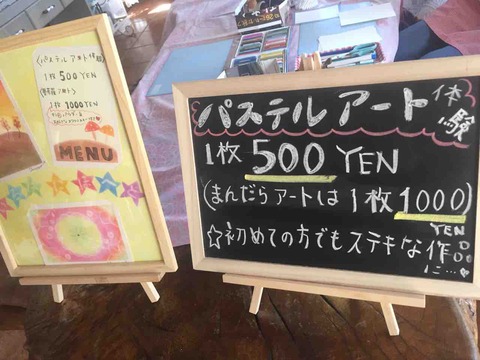 〈パステルアート体験〉
1枚 500 YEN
1枚 1000YEN
MENU
パステルアート体験
1枚 500 YEN
(まんだらアートは1枚1000)
YEN
☆初めての方でもステキな作品
に…♥